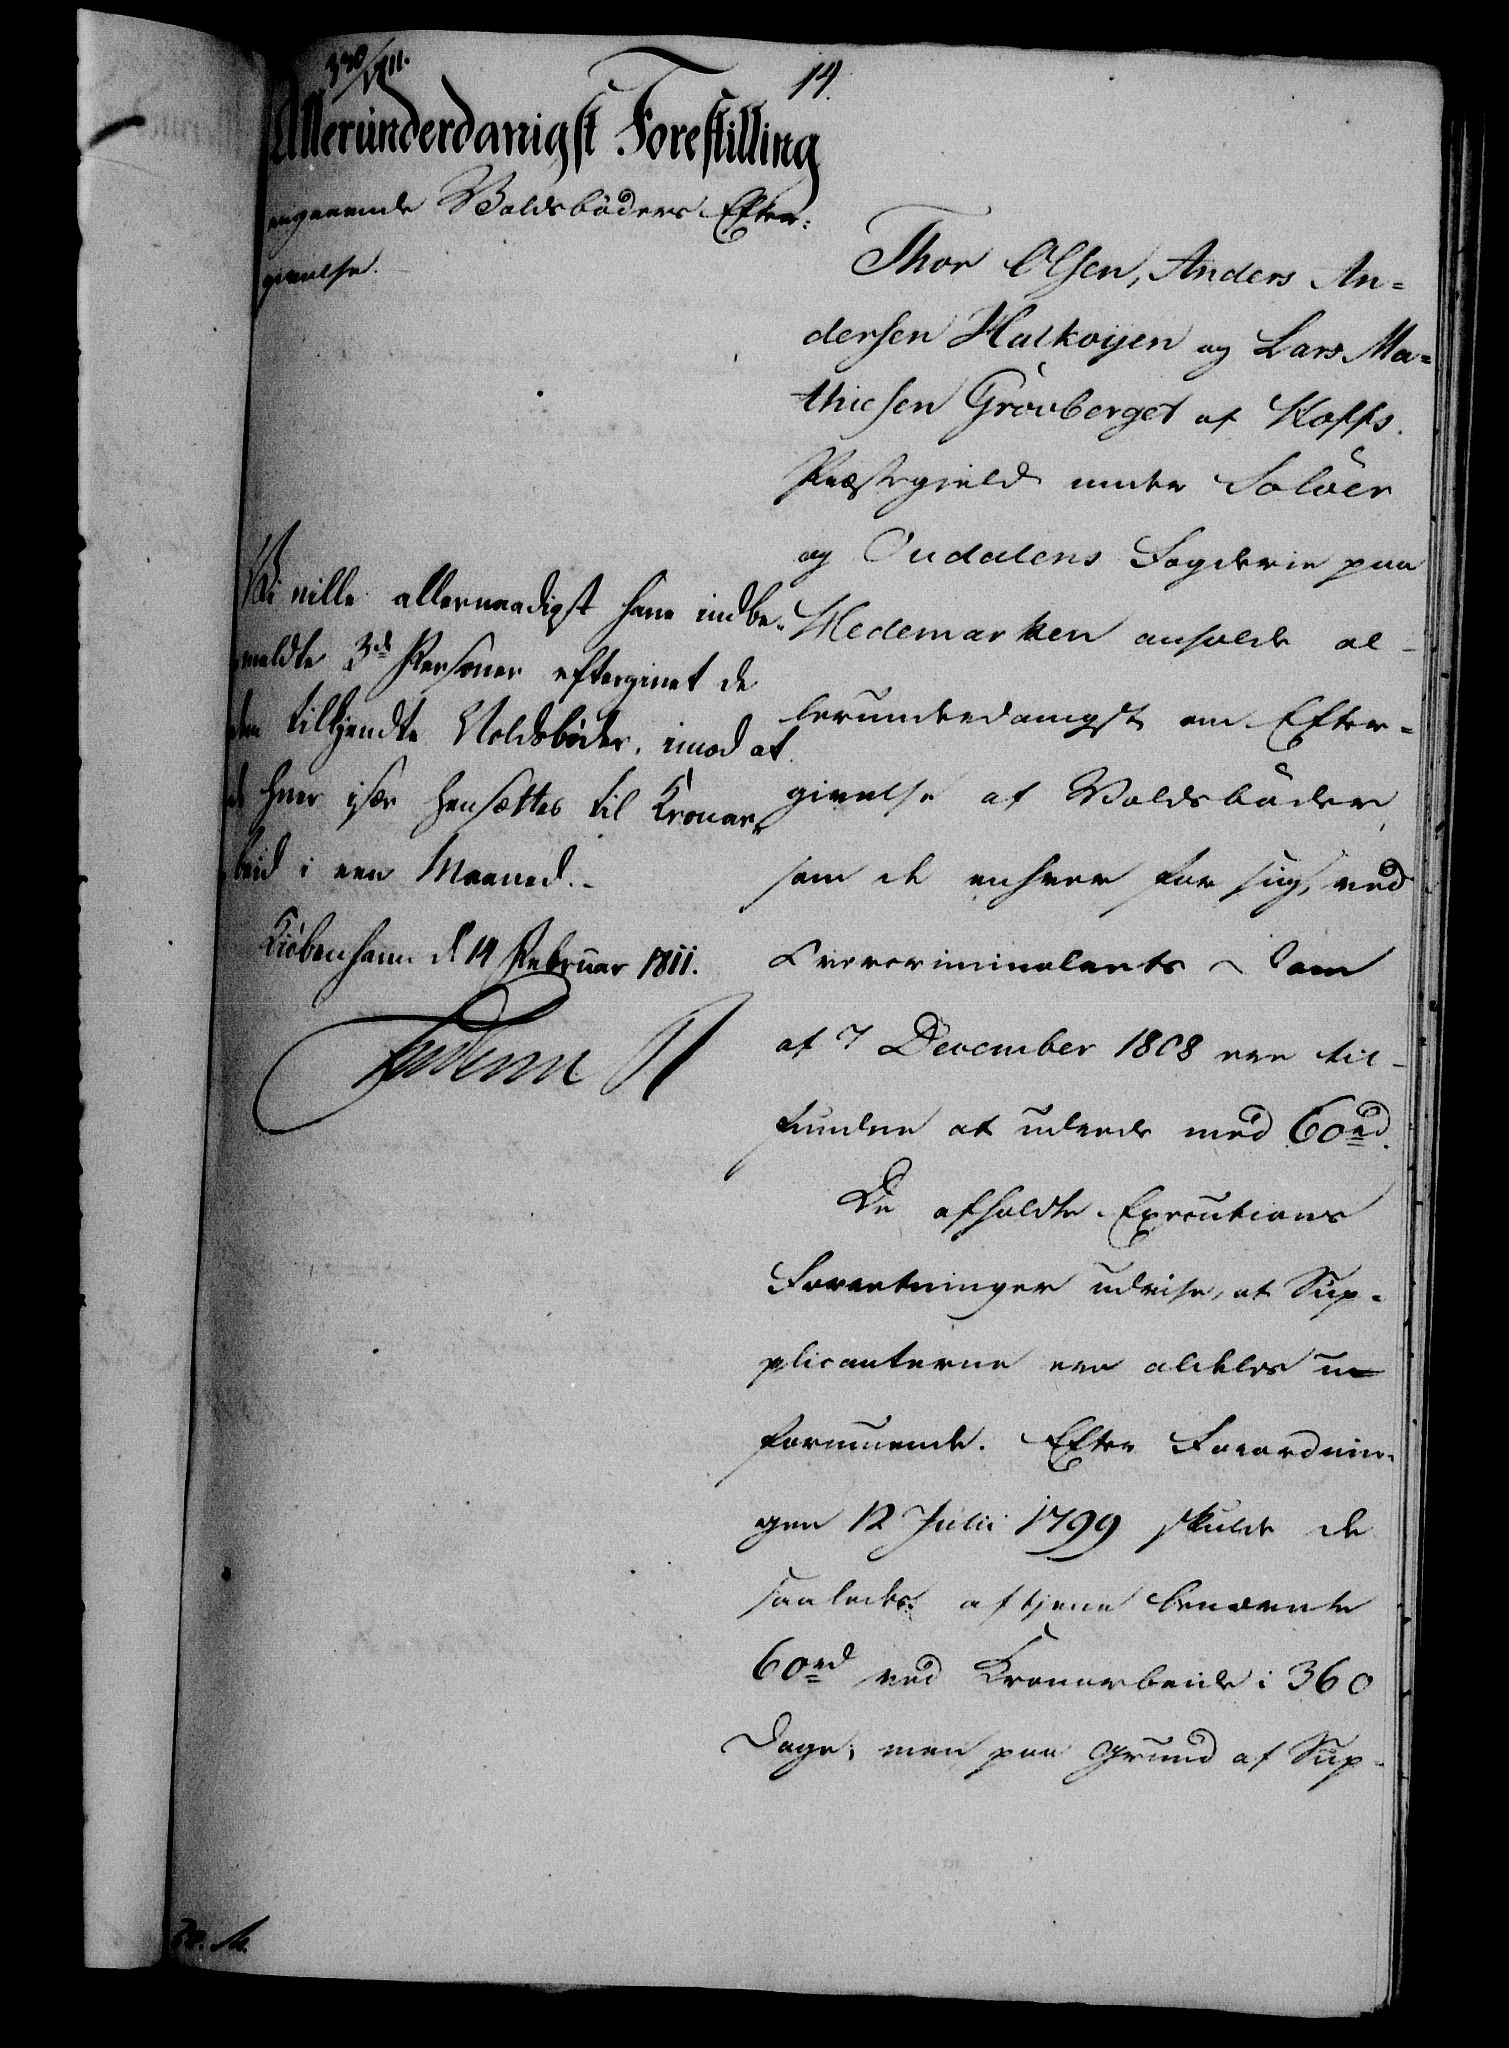 340/1811.
14.
Allerunderdanigst Forestilling
angaaende Voldsböders Efter-
givelse.
Thor Olsen, Anders An-
dersen Halkoyen og Lars Ma-
thiesen Grövberget af Hoffs
Præstegield under Soløer
og Oudalens Fogderie paa
Hedemarken ansøkte al-
lerunderdanigst om Efter-
givelse af Voldsböder,
som de enhver for sig, ved
Overcriminalrets Dom
af 7 December 1808 ere til-
fundne at udrede med 60rd.
De afholdte Executions
Forretninger udvise, at Sup-
plicanterne ere aldeles u-
formuende. Efter Forordnin-
gen 12 Julii 1799 skulde de
saaledes aftjene benævnte
60rd ved Kronarbeide i 360
Dage; men paa Grund af Sup-
Vi ville allernaadigst have indbe-
meldte 3de Personer eftergivet de
dem tilkjendte Voldsböder, imod at
de hver især hensættes til Kronar-
beid i een Maaned.
Kiöbenhavn d. 14 Februar 1811.
Frederik R